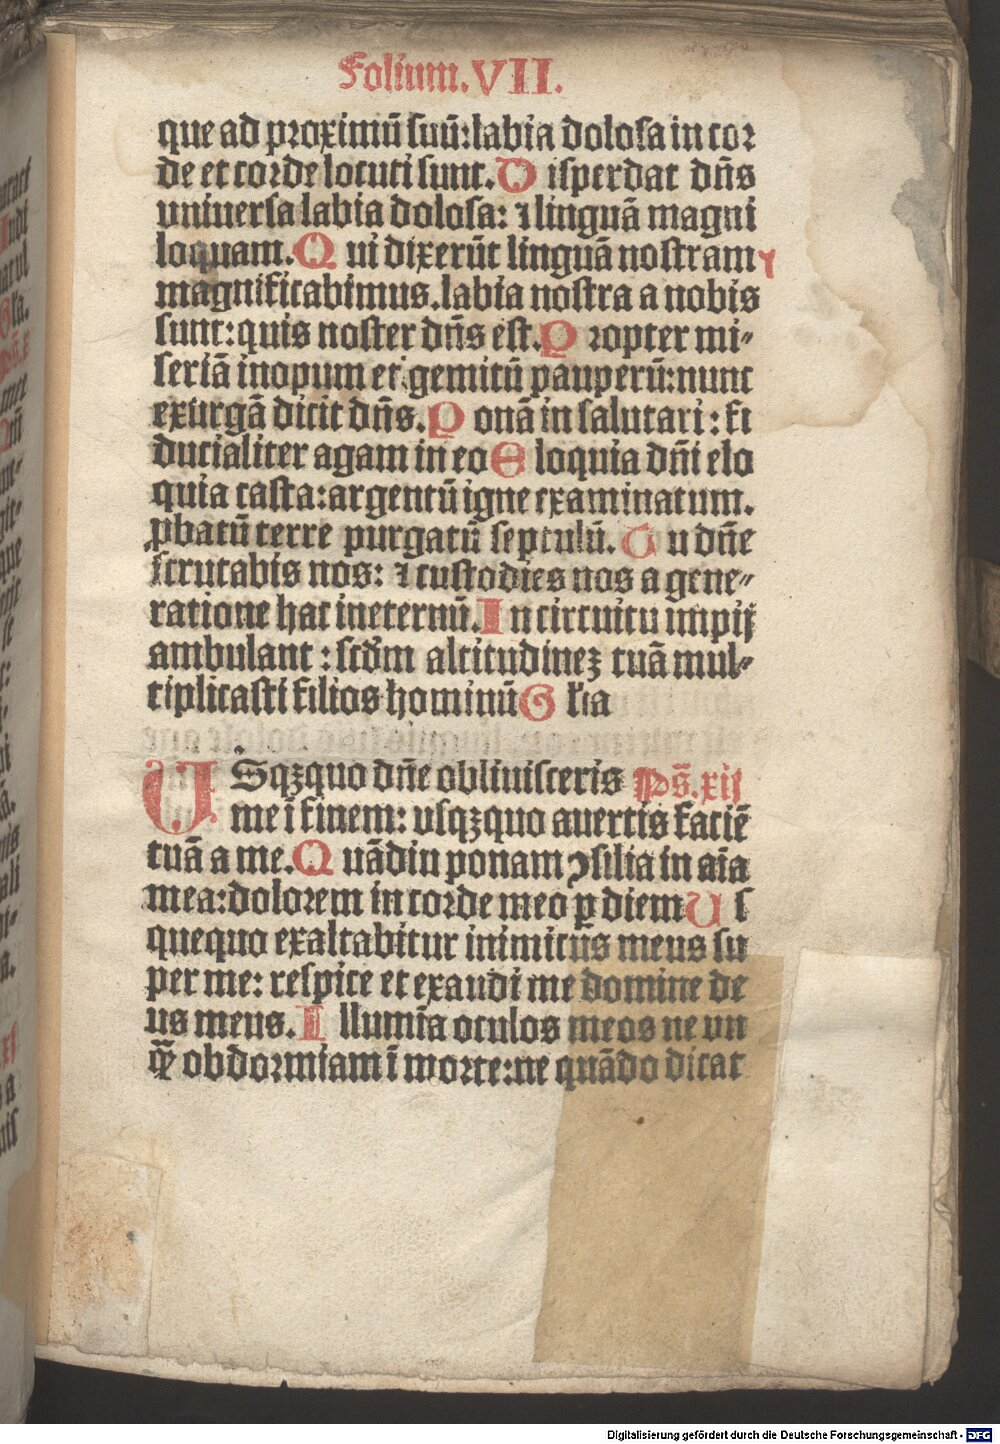 Folium.VII.
que ad proximū suū:labia dolosa in cor
de et corde locuti sunt.Disperdat dn̄s
universa labia dolosa: ⁊linguā magni
loquam.Qui dixerūt linguā nostram
magnificabimus.labia nostra a nobis
sunt:quis noster dn̄s est.Propter mi⸗
seriā inopum et gemitū pauperū:nunc
exurgā dicit dn̄s.Ponā in salutari:fi
ducialiter agam in eo Eloquia dn̄i elo
quia casta:argentū igne examinatum.
ꝓbatū terre purgatū septulū.Tu dn̄e
scrutabis nos: ⁊custodies nos a gene⸗
ratione hac ineternū.In circuitu impij
ambulant:scd̄m altitudineꝫ tuā mul⸗
tiplicasti filios hominū Gl'ia
USqꝫquo dn̄e oblivisceris Ps̄.xij
me ī finem: usqꝫquo avertis faciē
tuā a me.Quādiu ponam ꝯsilia in aīa
mea:dolorem in corde meo ꝑ diem Us
quequo exaltabitur inimicus meus su
per me: respice et exaudi me domine de
us meus.Illumīa oculos meos ne un
q̄ obdormiam ī morte:ne quādo dicat
Digitalisierung gefördert durch die Deutsche Forschungsgemeinschaft - DFG